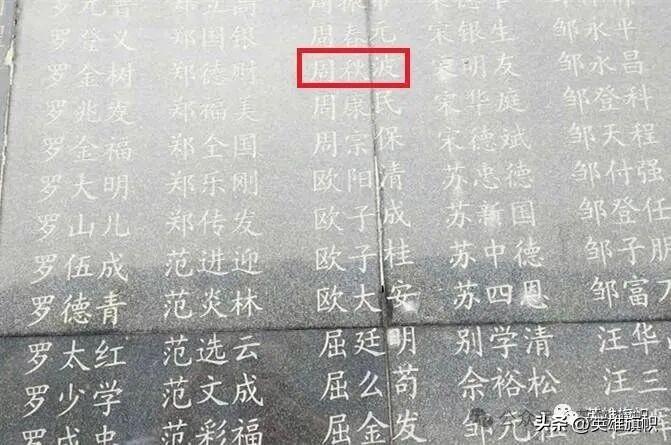 罗登义 郑国银 周春元 宋银生 邹永平
罗金树 郑德财 周秋波 宋明友 邹永昌
罗兆发 郑福美 周康民 宋华庭 邹登科
罗金福 郑全国 周宗保 宋德斌 邹天程
罗大明 郑乐刚 欧阳清 苏忠德 邹付强
罗山儿 郑传发 欧子成 苏新国 邹登任
罗伍成 范进迎 欧子桂 苏中德 邹子鹏
罗德青 范炎林 欧大安 苏四恩 邹富万
罗太红 范选云 屈廷明 别学清 汪华
罗少学 范文成 屈么苟 佘裕松 汪三
范彩福 屈金发 邹元
头条 @英雄旗帜